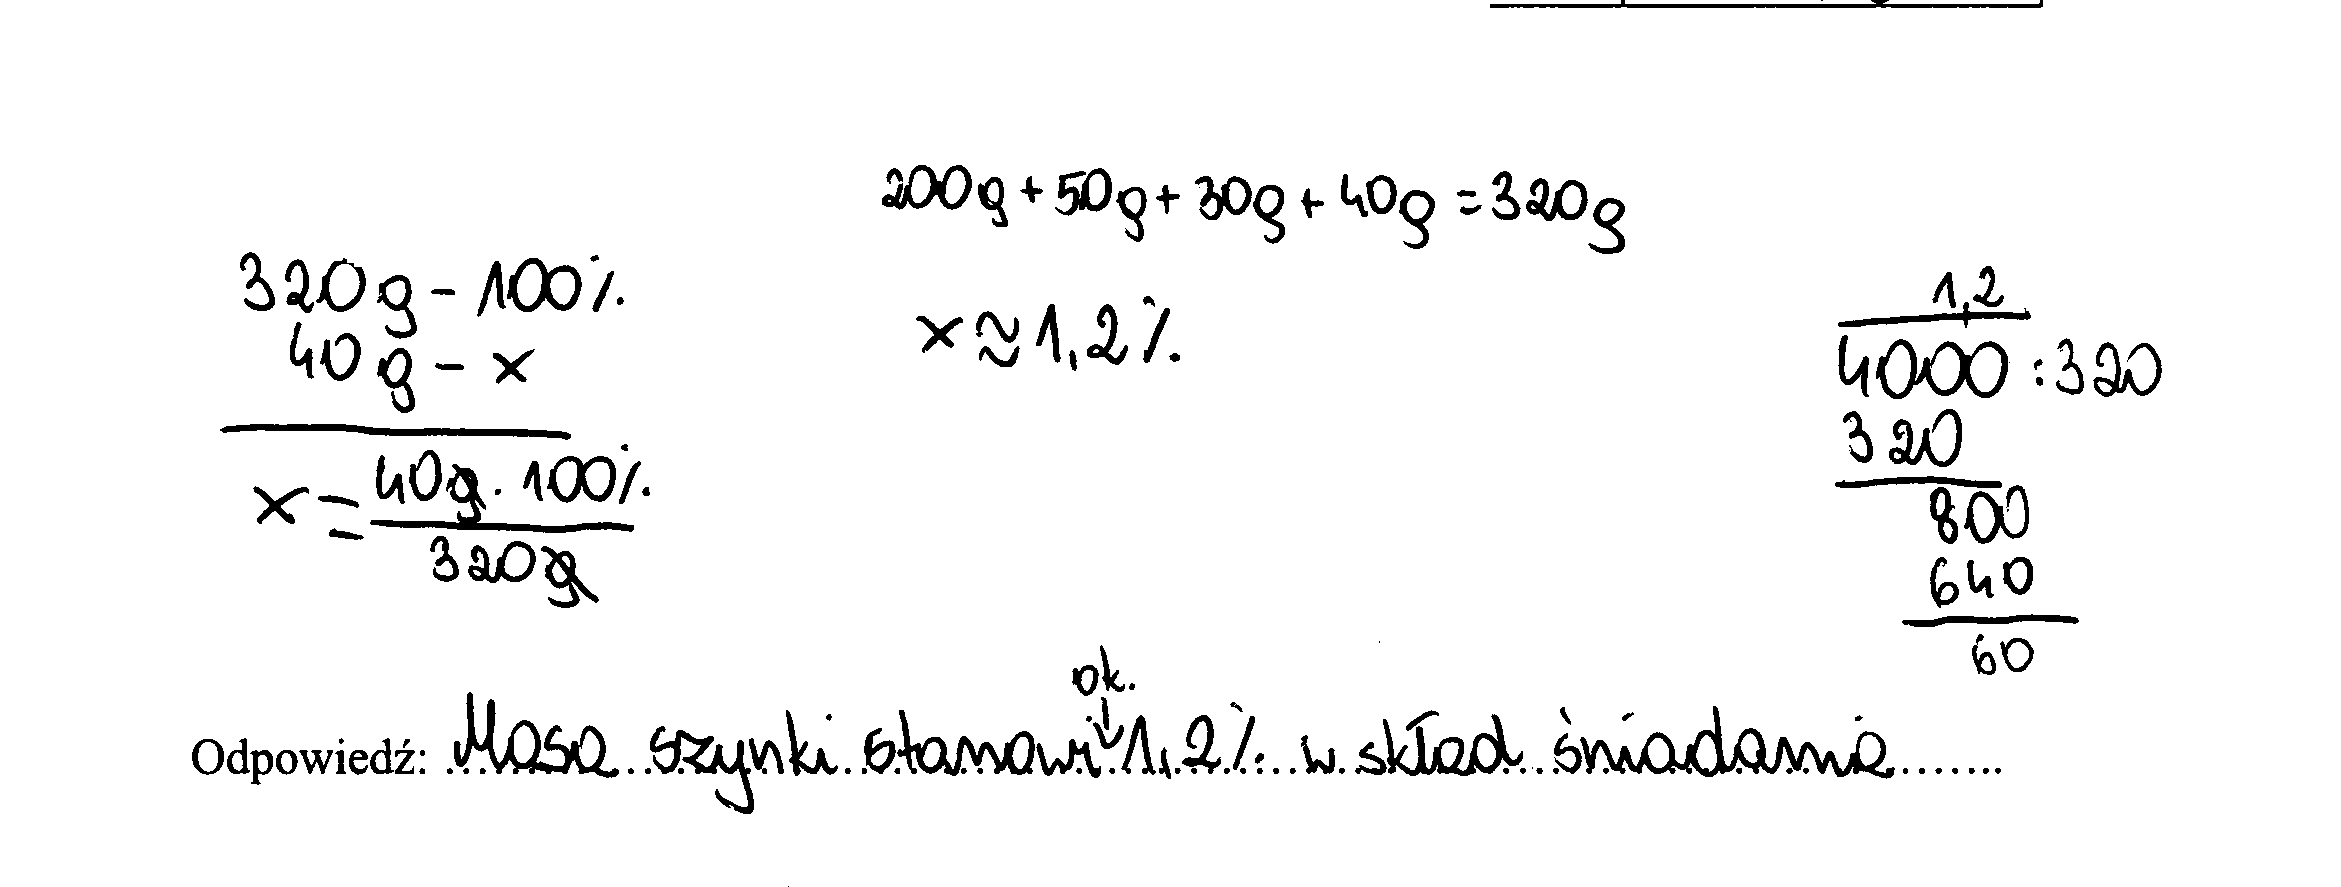 200g + 50g + 30g + 40g = 320g
320g - 100%
40g - x
x = 40g · 100% / 320g
x ≈ 1,2%
1,2
4000 : 320
320
800
640
60
ok.
Odpowiedź: Masa szynki stanowi 1,2% w skład śniadania